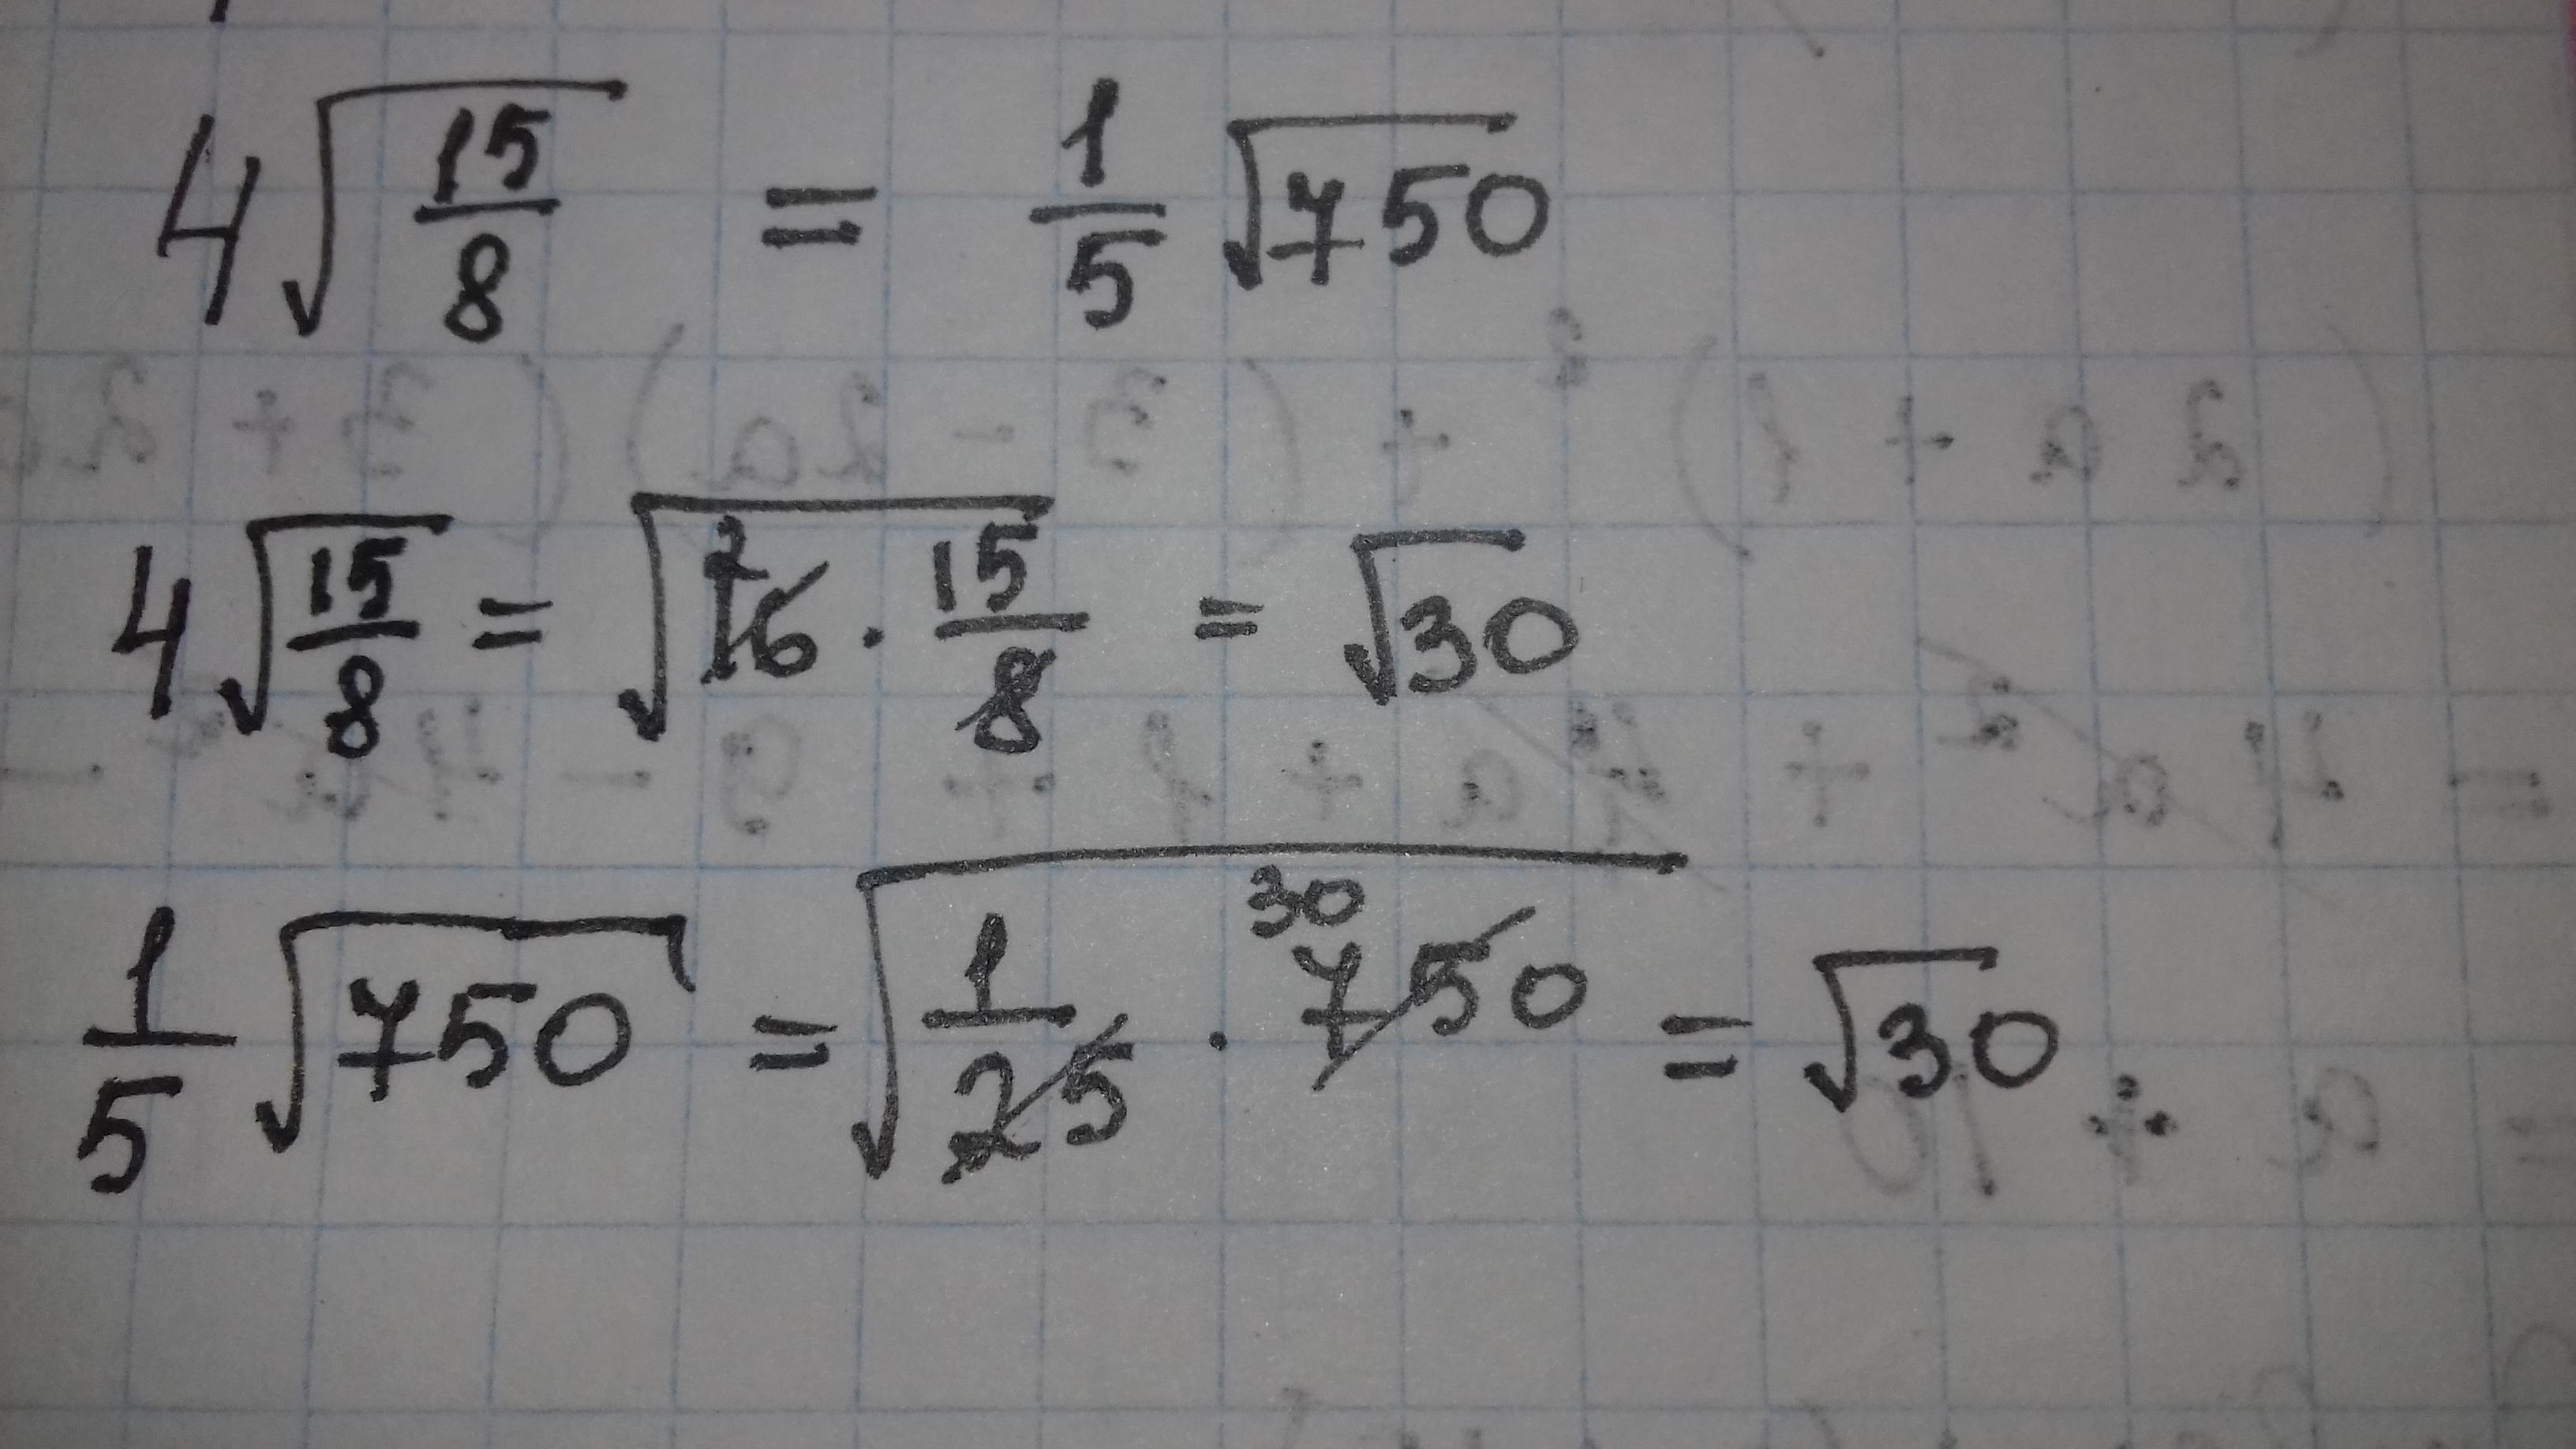 4√(15/8) = 1/5 √750
4√(15/8) = √(16² · 15/8) = √30
1/5 √750 = √(1/25 · 750³⁰) = √30.